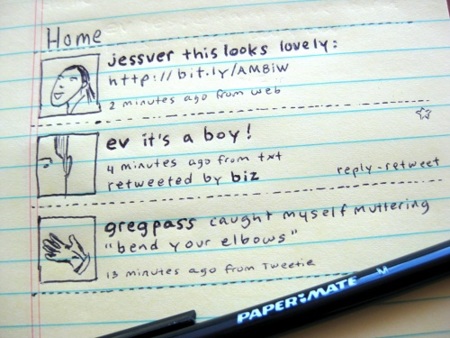 Home
jessver this looks lovely:
http://bit.ly/AM8iW
2 minutes ago from web
ev it's a boy!
4 minutes ago from txt
retweeted by biz
reply-retweet
gregpass caught myself muttering
"bend your elbows"
13 minutes ago from Tweetie
PAPER:MATE
M